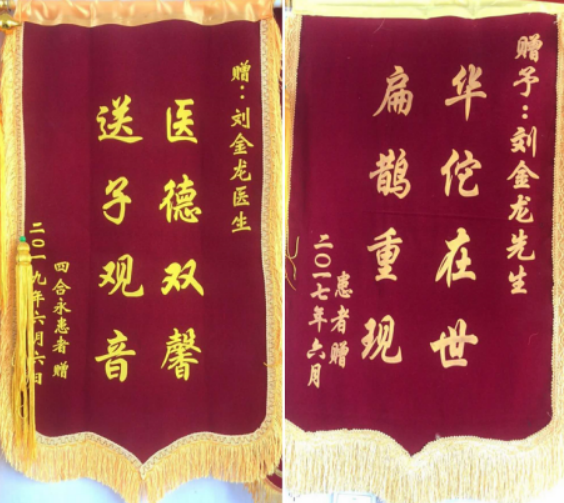 赠：刘金龙医生
医德双馨
送子观音
四合永患者 赠
二〇一九年六月六日
赠予：刘金龙先生
华佗在世
扁鹊重现
患者赠
二〇一七年六月